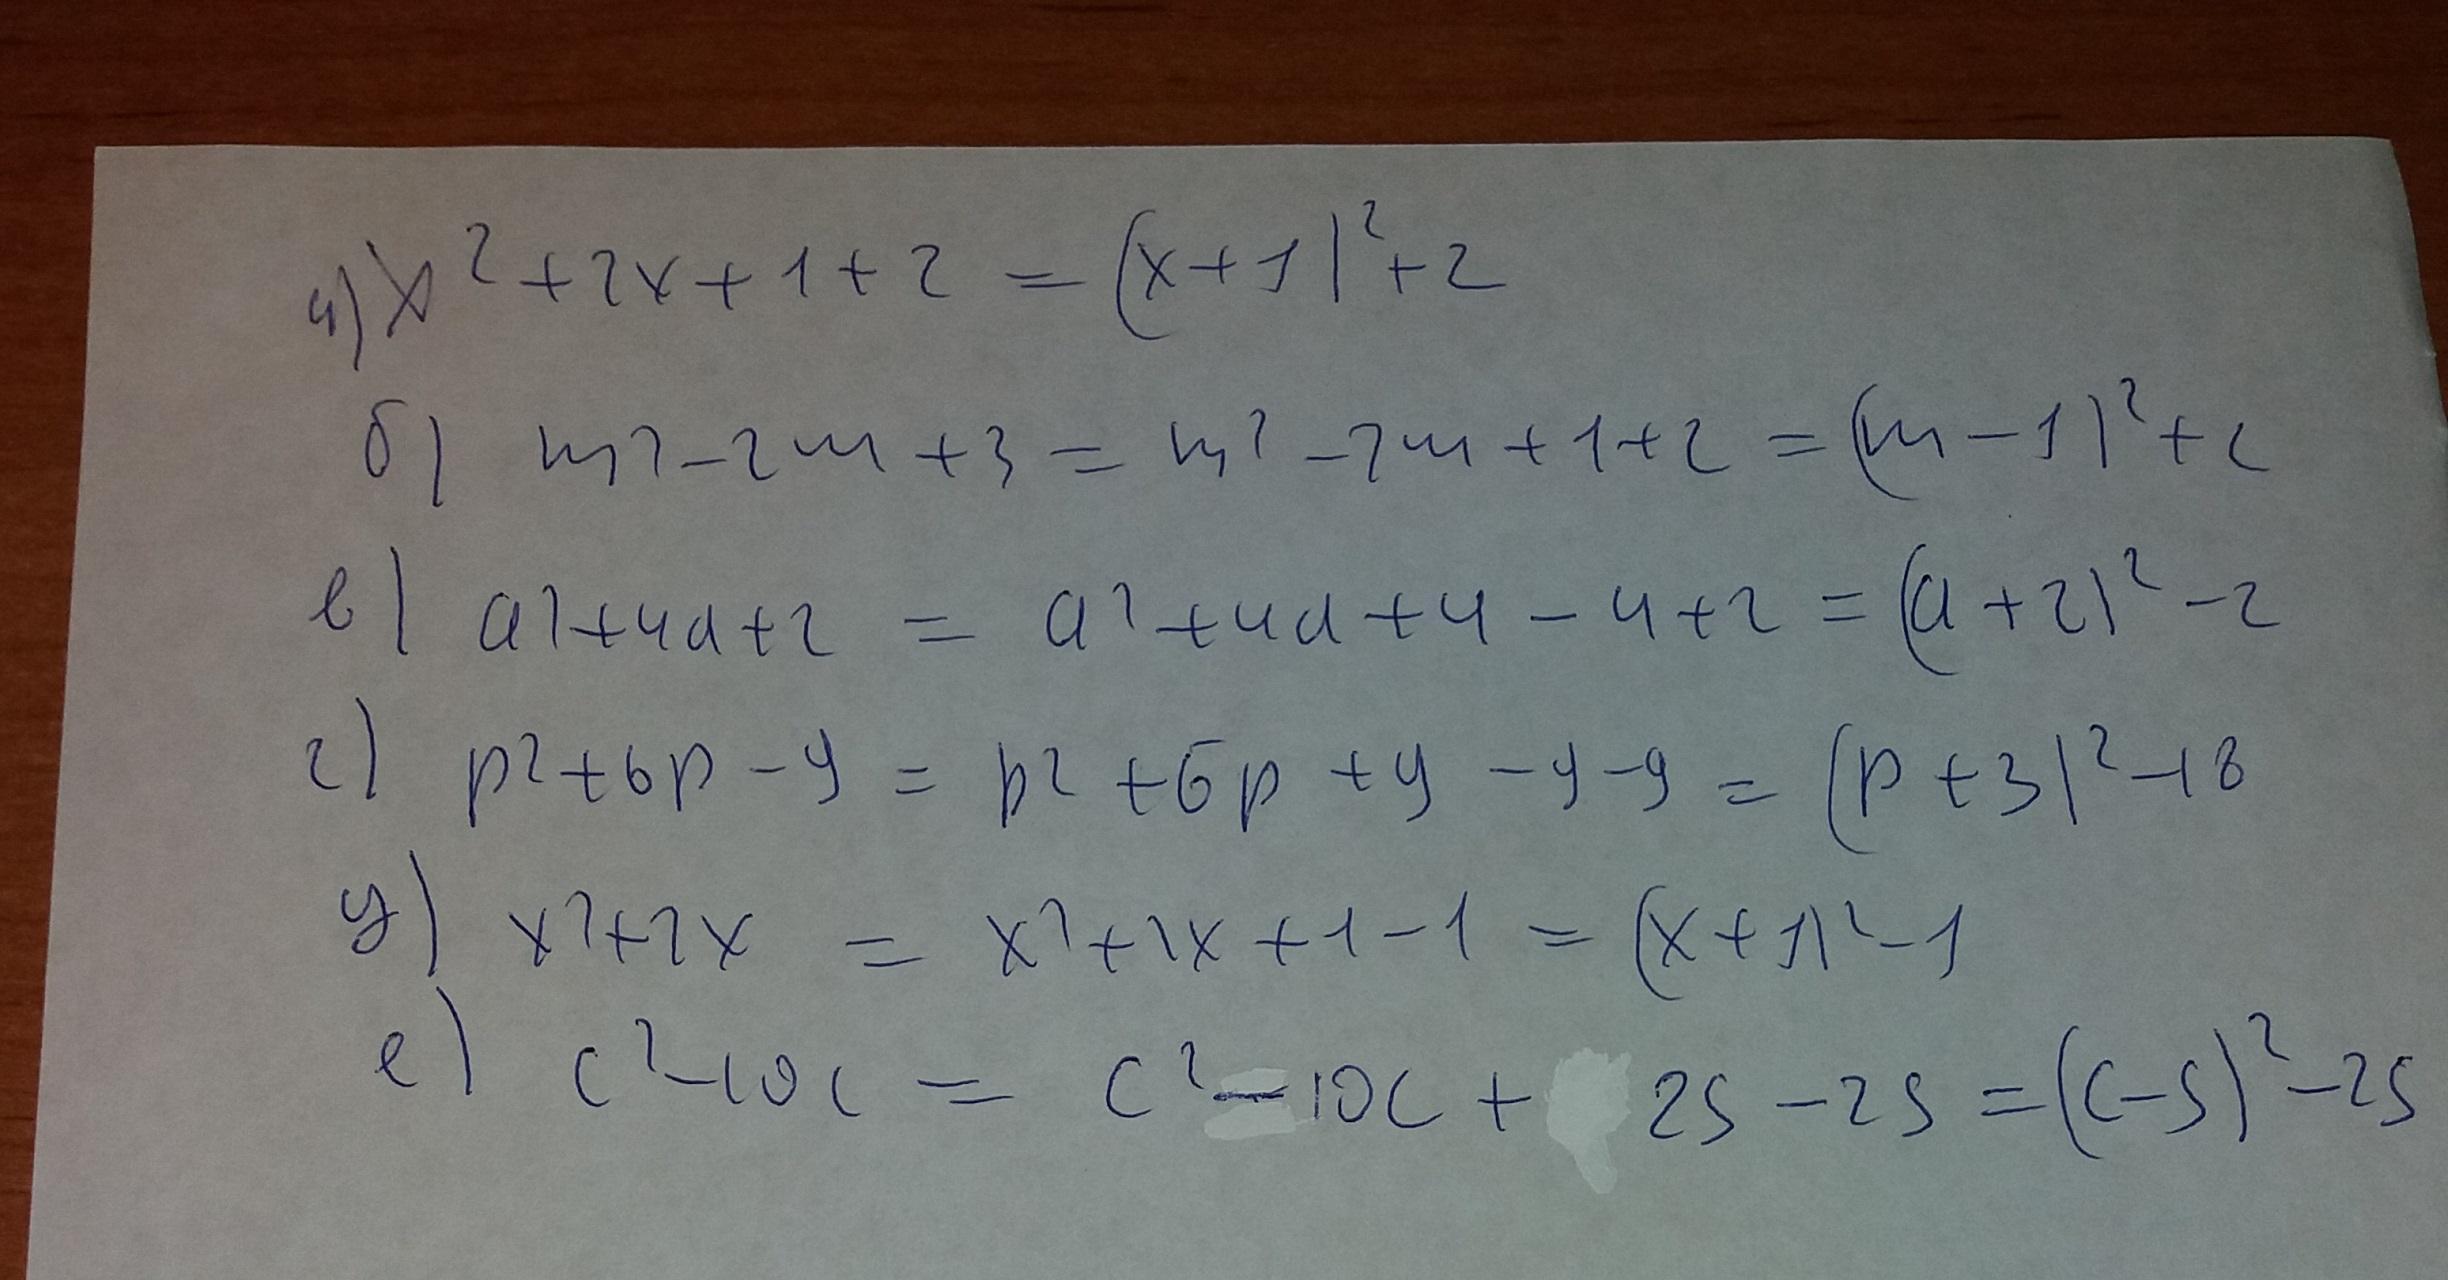 а) x² + 2x + 1 + 2 = (x + 1)² + 2
б) m² - 2m + 3 = m² - 2m + 1 + 2 = (m - 1)² + 2
в) a² + 4a + 2 = a² + 4a + 4 - 4 + 2 = (a + 2)² - 2
г) p² + 6p - 9 = p² + 6p + 9 - 9 - 9 = (p + 3)² - 18
д) x² + 2x = x² + 2x + 1 - 1 = (x + 1)² - 1
е) c² - 10c = c² - 10c + 25 - 25 = (c - 5)² - 25